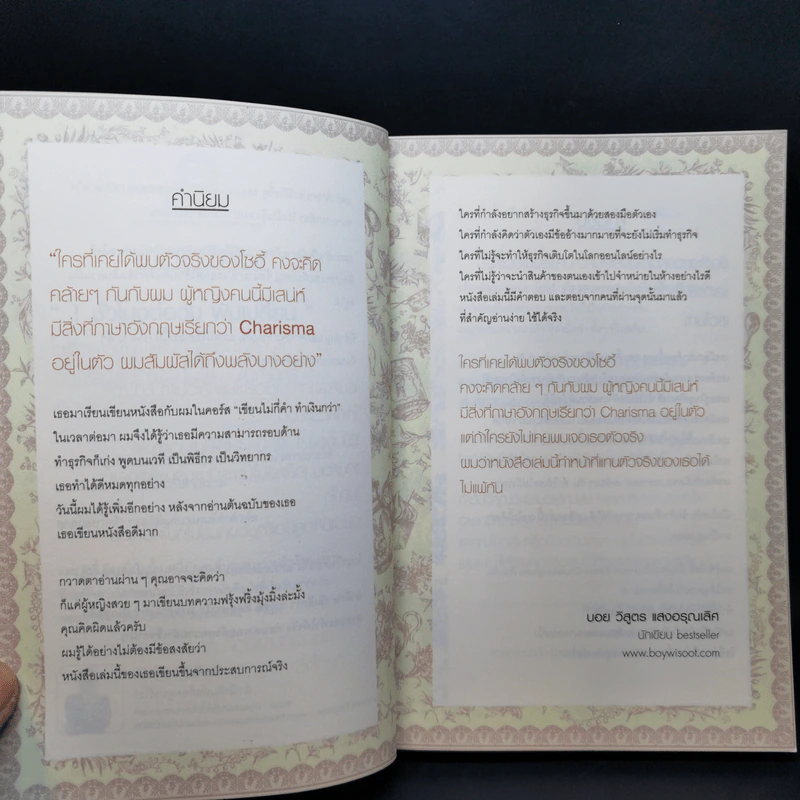 คำนิยม
“ใครที่เคยได้พบตัวจริงของโชอี้ คงจะคิด
คล้ายๆ กันกับผม ผู้หญิงคนนี้มีเสน่ห์
มีสิ่งที่ภาษาอังกฤษเรียกว่า Charisma
อยู่ในตัว ผมสัมผัสได้ถึงพลังบางอย่าง”
เธอมาเรียนเขียนหนังสือกับผมในคอร์ส “เขียนไม่กี่คำ ทำเงินกว่า”
ในเวลาต่อมา ผมจึงได้รู้ว่าเธอมีความสามารถรอบด้าน
ทำธุรกิจก็เก่ง พูดบนเวที เป็นพิธีกร เป็นวิทยากร
เธอทำได้ดีหมดทุกอย่าง
วันนี้ผมได้รู้เพิ่มอีกอย่าง หลังจากอ่านต้นฉบับของเธอ
เธอเขียนหนังสือดีมาก
กวาดตาอ่านผ่าน ๆ คุณอาจจะคิดว่า
ก็แค่ผู้หญิงสวย ๆ มาเขียนบทความฟรุ้งฟริ้งมุ้งมิ้งล่ะมั้ง
คุณคิดผิดแล้วครับ
ผมรู้ได้อย่างไม่ต้องมีข้อสงสัยว่า
หนังสือเล่มนี้ของเธอเขียนขึ้นจากประสบการณ์จริง
ใครที่กำลังอยากสร้างธุรกิจขึ้นมาด้วยสองมือตัวเอง
ใครที่กำลังคิดว่าตัวเองมีข้ออ้างมากมายที่จะยังไม่เริ่มทำธุรกิจ
ใครที่ไม่รู้จะทำให้ธุรกิจเติบโตในโลกออนไลน์อย่างไร
ใครที่ไม่รู้ว่าจะนำสินค้าของตนเองเข้าไปจำหน่ายในห้างอย่างไรดี
หนังสือเล่มนี้มีคำตอบ และตอบจากคนที่ผ่านจุดนั้นมาแล้ว
ที่สำคัญอ่านง่าย ใช้ได้จริง
ใครที่เคยได้พบตัวจริงของโชอี้
คงจะคิดคล้าย ๆ กันกับผม ผู้หญิงคนนี้มีเสน่ห์
มีสิ่งที่ภาษาอังกฤษเรียกว่า Charisma อยู่ในตัว
แต่ถ้าใครยังไม่เคยพบเจอเธอตัวจริง
ผมว่าหนังสือเล่มนี้ทำหน้าที่แทนตัวจริงของเธอได้
ไม่แพ้กัน
บอย วิสูตร แสงอรุณเลิศ
นักเขียน bestseller
www.boywisoot.com